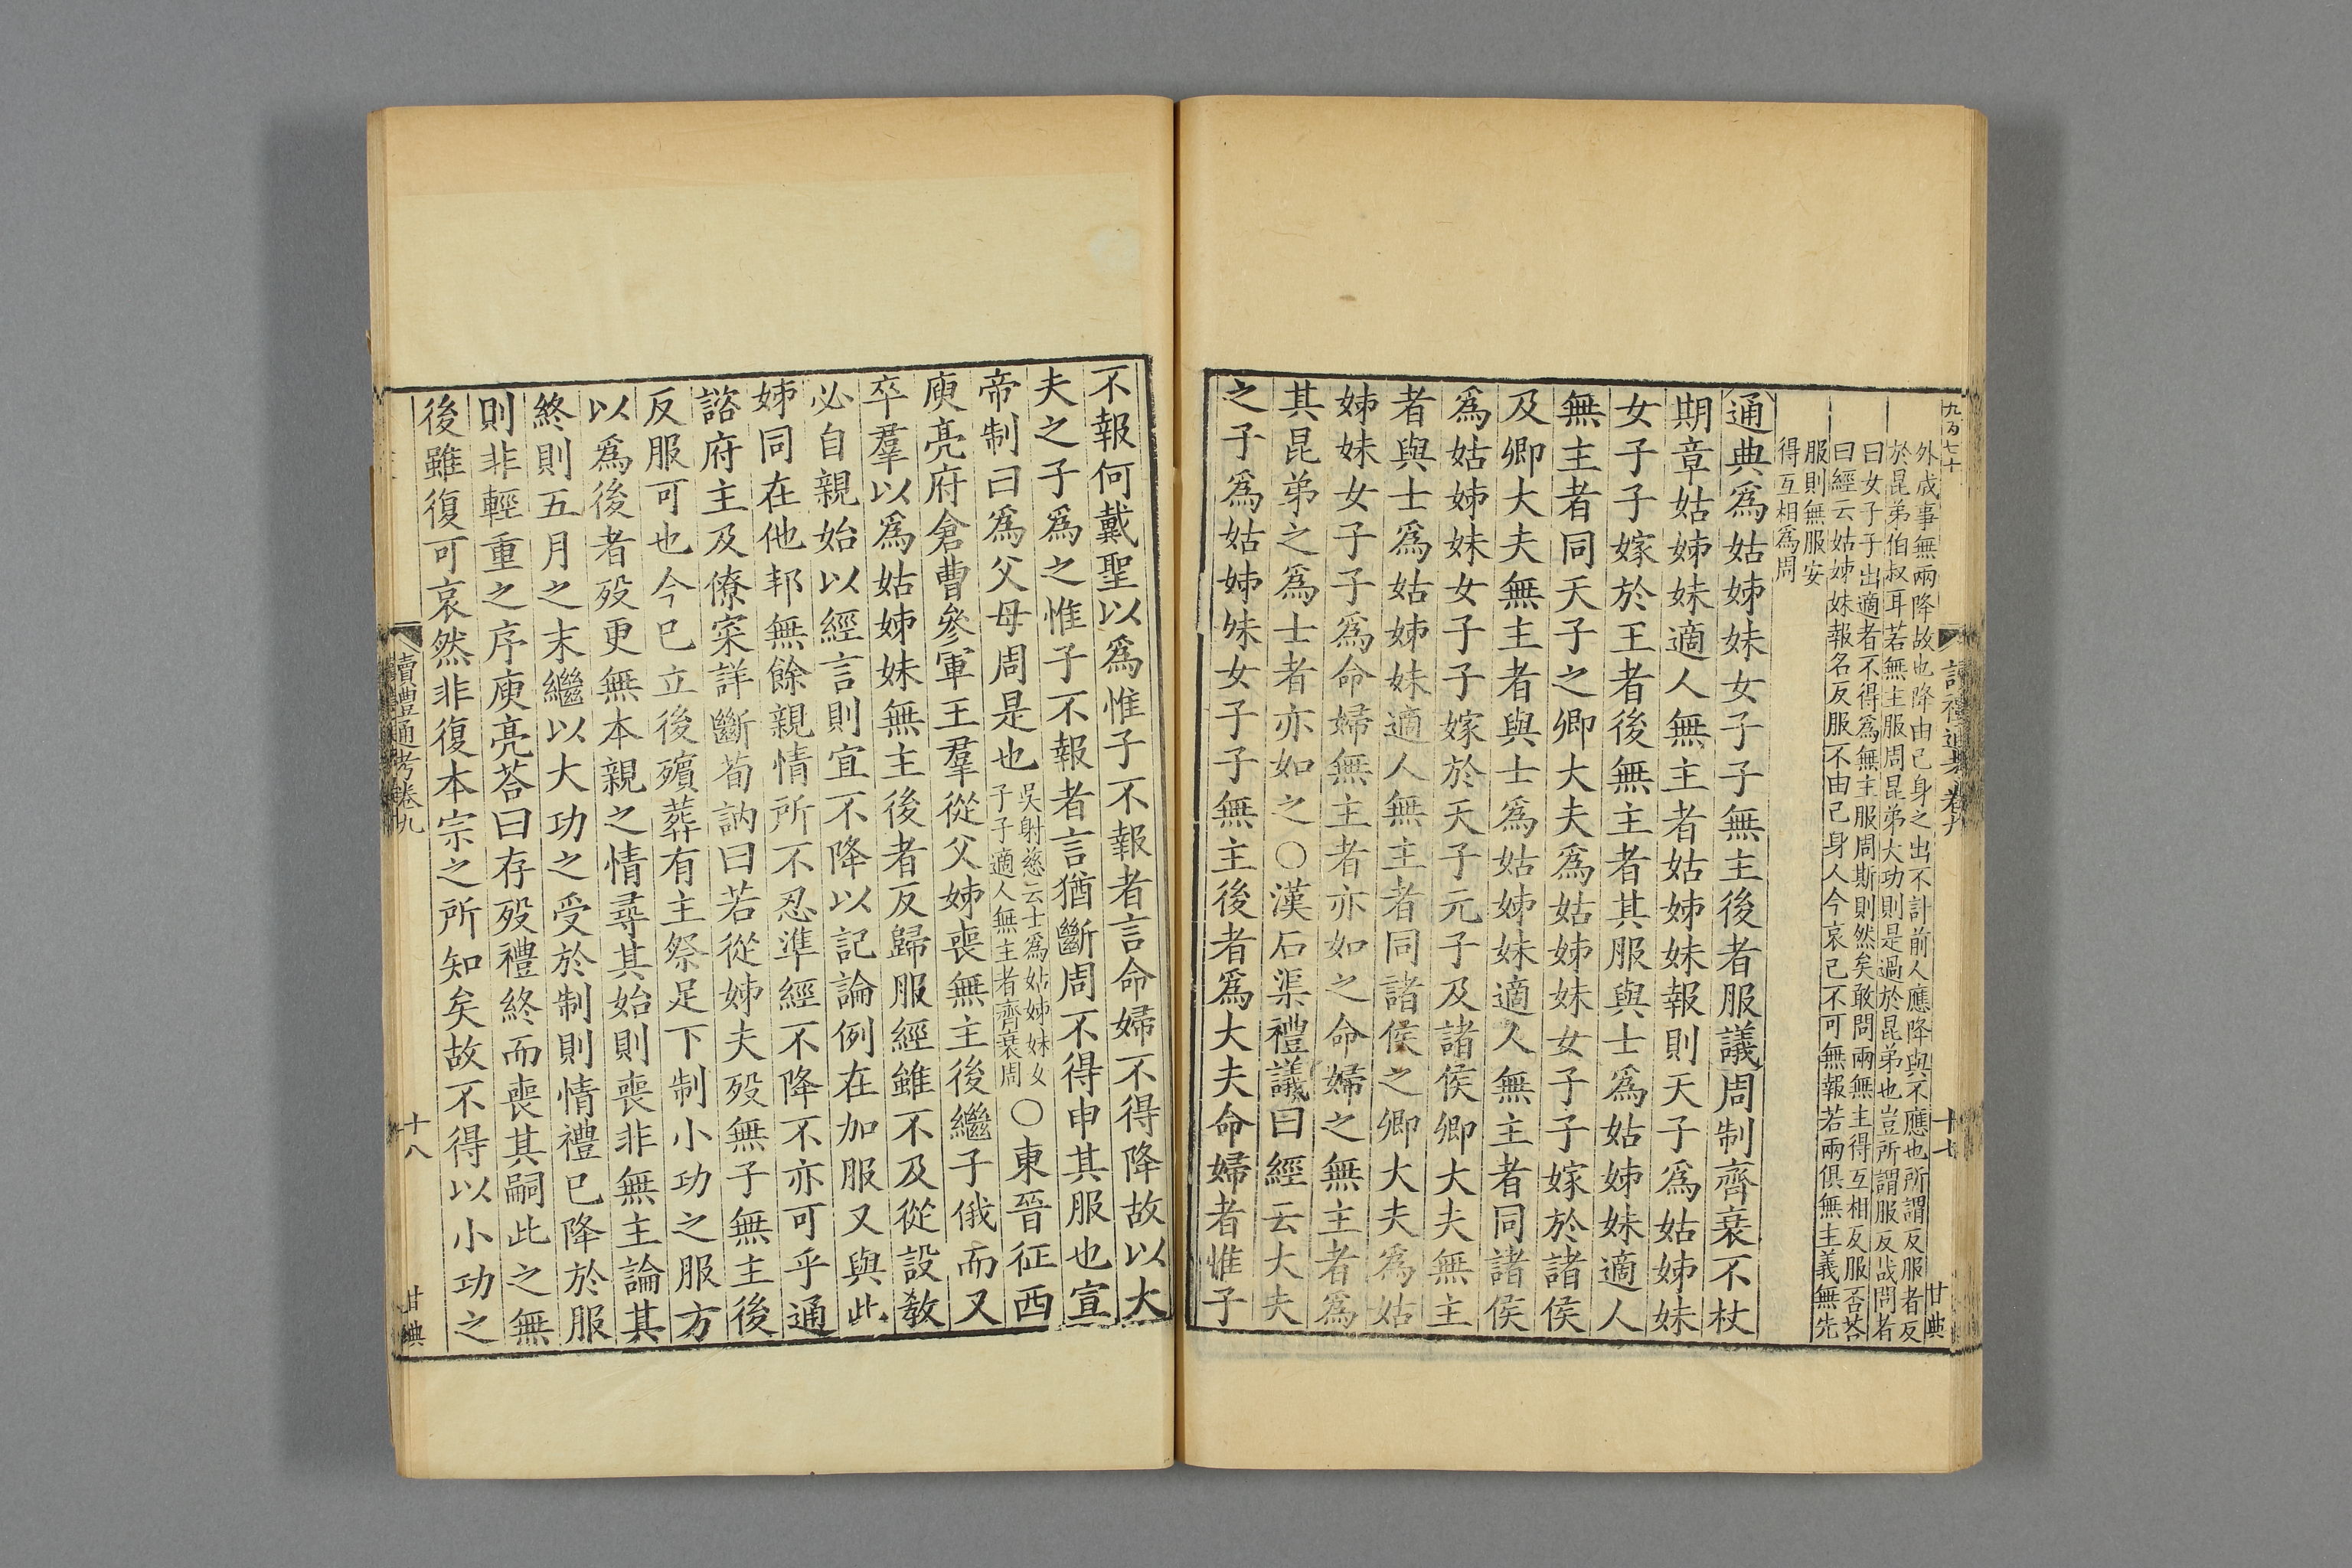 九百七十
外成事無兩降故也降由己身之出不計前人應降與不應也所謂反服者反
於昆弟伯叔耳若無主服周昆弟大功則是過於昆弟也豈所謂服反哉問者
曰女子子出適者不得爲無主服周斯則然矣敢問兩無主得互相反服否荅
曰經云姑姊妹報名反服不由己身人今哀己不可無報若兩俱無主義無先
服則無服安
得互相爲周
通典爲姑姊妹女子子無主後者服議周制齊衰不杖
期章姑姊妹適人無主者姑姊妹報則天子爲姑姊妹
女子子嫁於王者後無主者其服與士爲姑姊妹適人
無主者同天子之卿大夫爲姑姊妹女子子嫁於諸侯
及卿大夫無主者與士爲姑姊妹適人無主者同諸侯
爲姑姊妹女子子嫁於天子元子及諸侯卿大夫無主
者與士爲姑姊妹適人無主者同諸侯之卿大夫爲姑
姊妹女子子爲命婦無主者亦如之命婦之無主者爲
其昆弟之爲士者亦如之○漢石渠禮議曰經云大夫
之子爲姑姊妹女子子無主後者爲大夫命婦者惟子
不報何戴聖以爲惟子不報者言命婦不得降故以大
夫之子爲之惟子不報者言猶斷周不得申其服也宣
帝制曰爲父母周是也吳射慈云士爲姑姊妹女子子適人無主者齊衰周○東晉征西
庾亮府倉曹參軍王羣從父姊喪無主後繼子俄而又
卒羣以爲姑姊妹無主後者反歸服經雖不及從設教
必自親始以經言則宜不降以記論例在加服又與此
姊同在他邦無餘親情所不忍準經不降不亦可乎通
諮府主及僚寀詳斷荀訥曰若從姊夫歿無子無主後
反服可也今已立後殯葬有主祭足下制小功之服方
以爲後者歿更無本親之情尋其始則喪非無主論其
終則五月之末繼以大功之受於制則情禮已降於服
則非輕重之序庾亮荅曰存歿禮終而喪其嗣此之無
後雖復可哀然非復本宗之所知矣故不得以小功之
讀禮通考卷九
十八